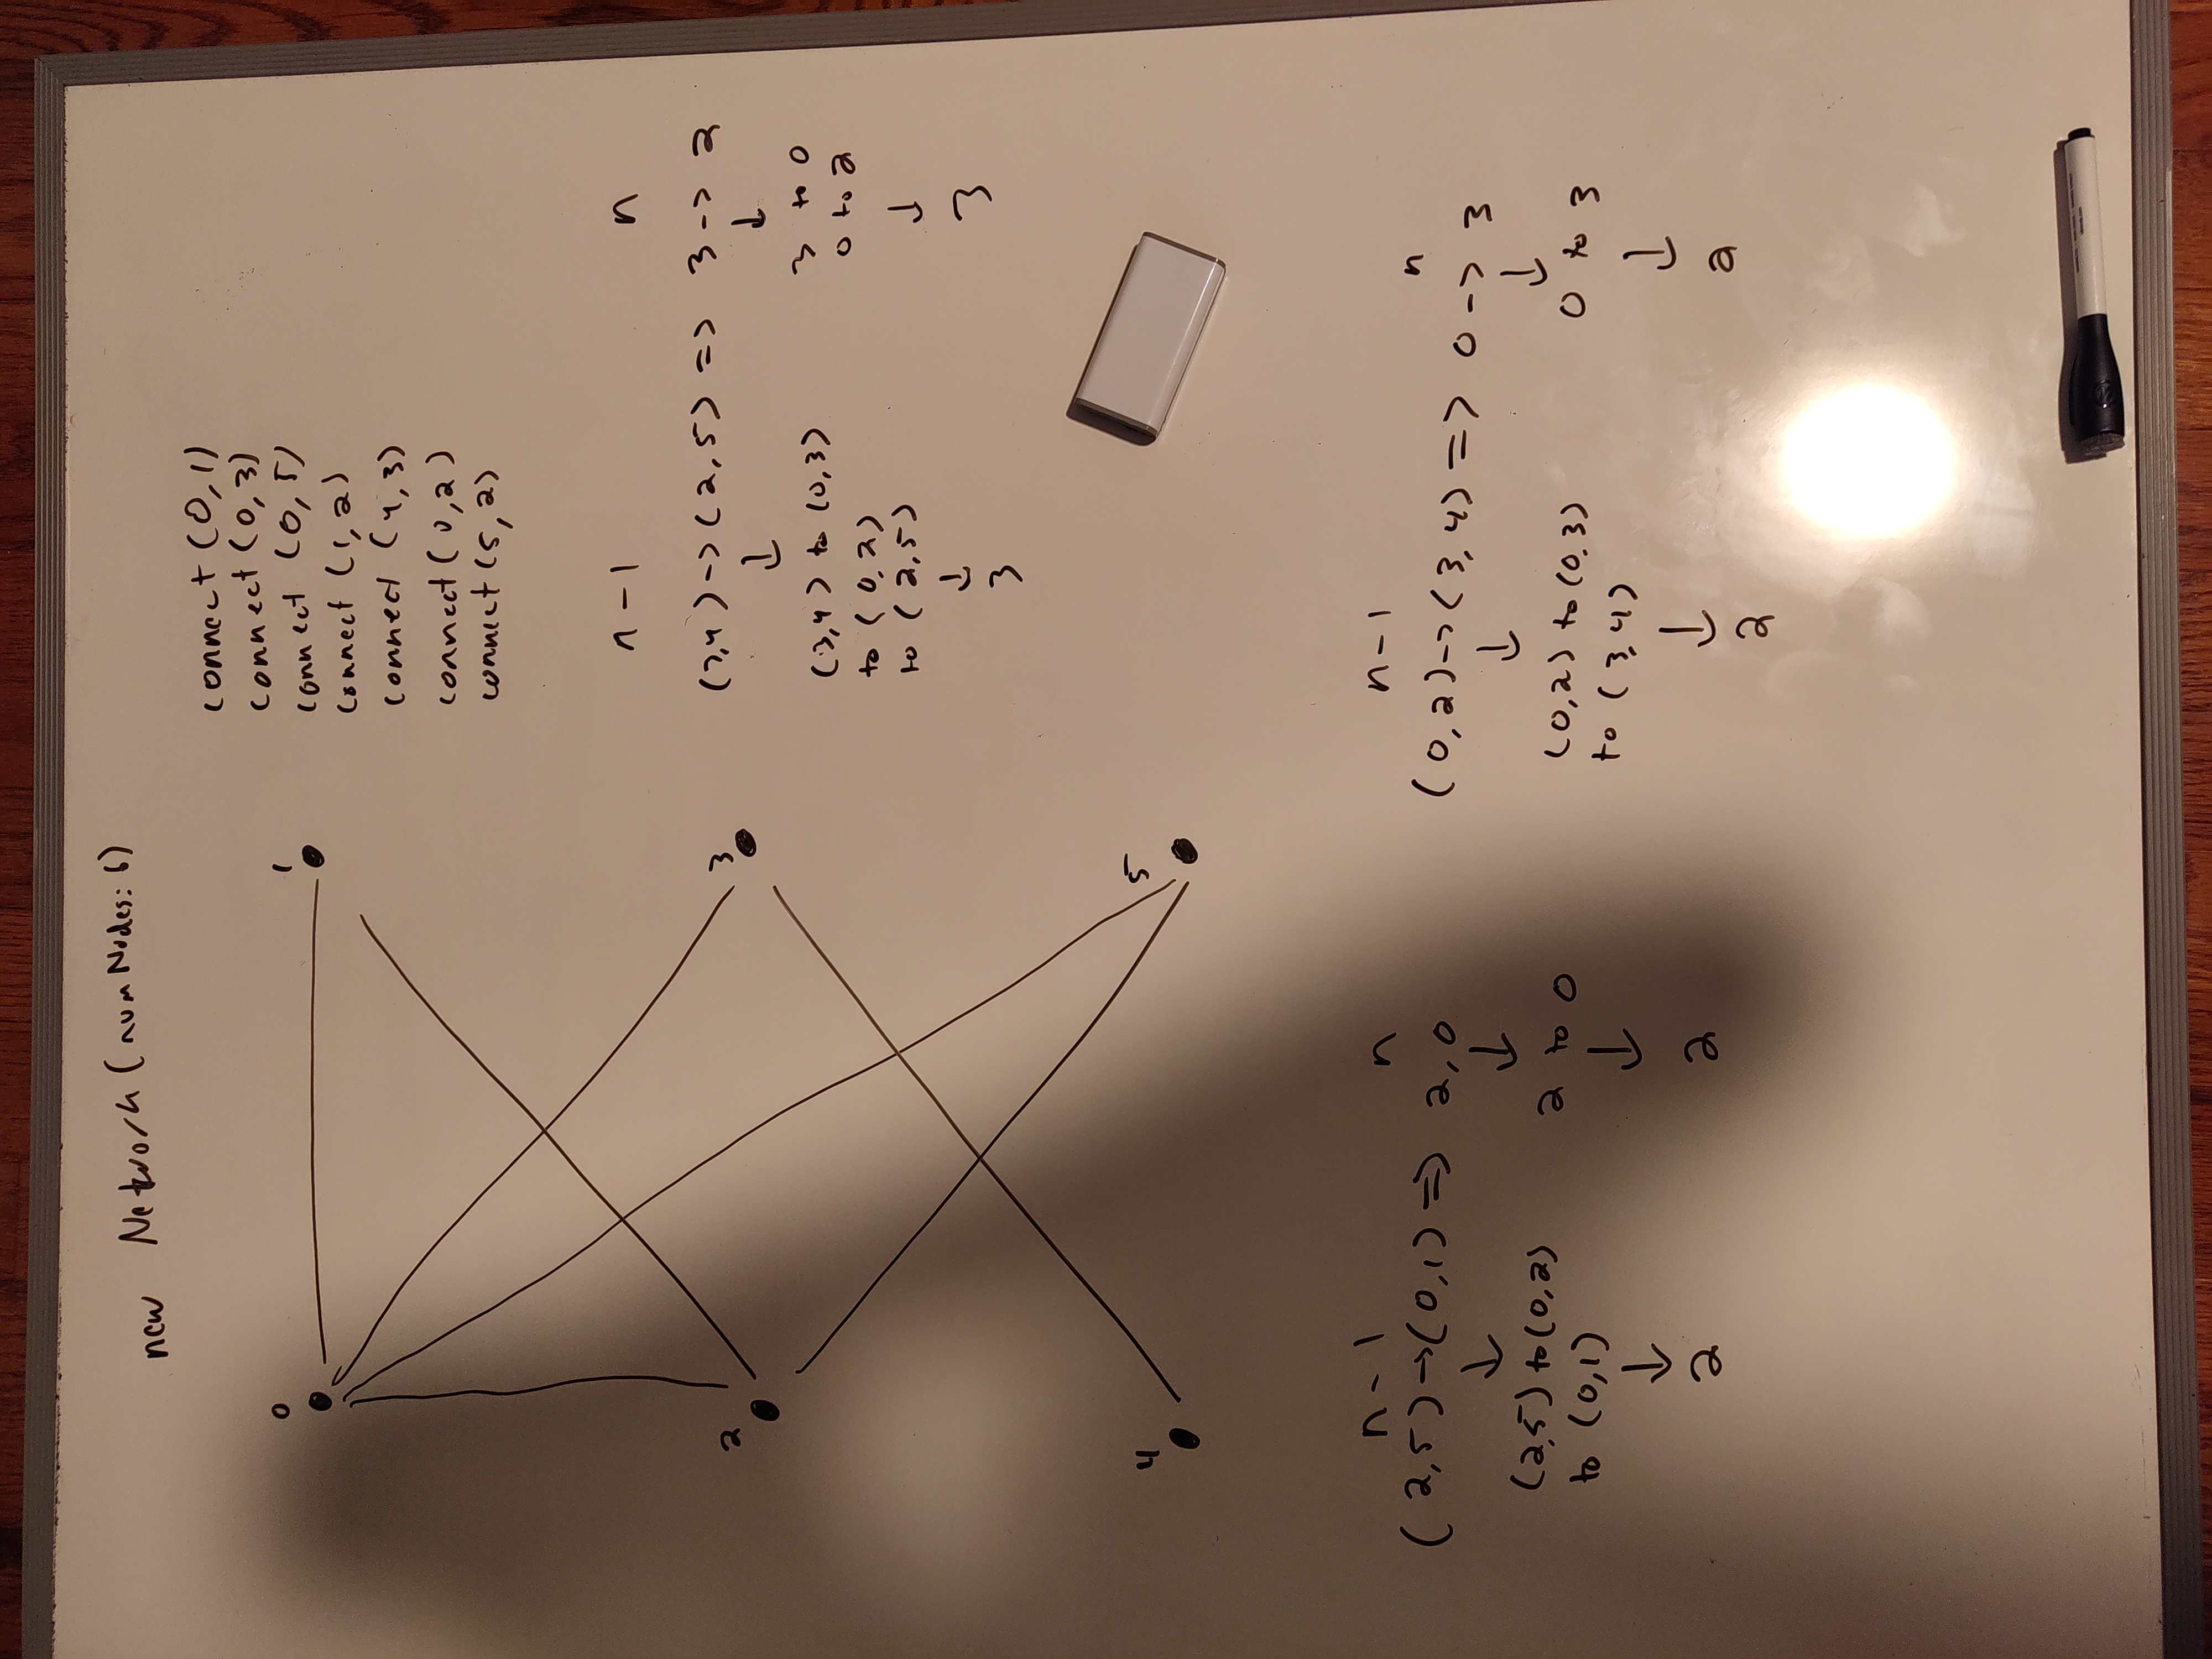 new Network (numNodes: 6)
connect (0,1)
connect (0,3)
connect (0,5)
connect (1,2)
connect (4,3)
connect (0,2)
connect (5,2)
0
1
2
3
4
5
n-1 n
(3,4) -> (2,5) => 3 -> 2
↓ ↓
(3,4) to (0,3) 3 to 0
to (0,2) 0 to 2
to (2,5) ↓
↓ 3
3
n-1 n
(2,5) → (0,1) => 2,0
↓ ↓
(2,5) to (0,2) 2 to 0
to (0,1) ↓
↓ 2
2
n-1 n
(0,2) -> (3,4) => 0 -> 3
↓ ↓
(0,2) to (0,3) 0 to 3
to (3,4) ↓
↓ 2
2